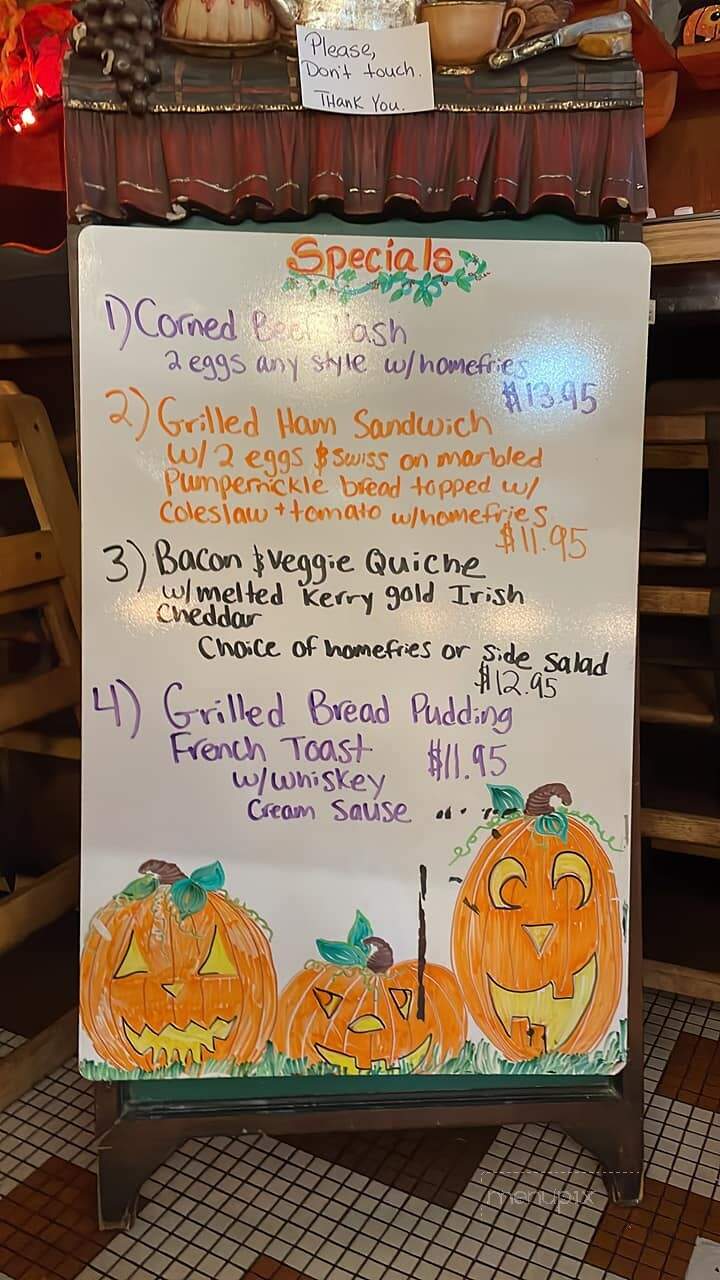 Please,
Don't touch.
THank You.
Specials
1) Corned Beef Hash
2 eggs any style w/homefries
$13.95
2) Grilled Ham Sandwich
w/2 eggs & Swiss on marbled
Pumpernickle bread topped w/
Coleslaw + tomato w/homefries
$11.95
3) Bacon & Veggie Quiche
w/melted Kerry gold Irish
Cheddar
Choice of homefries or side salad
$12.95
4) Grilled Bread Pudding
French Toast $11.95
w/whiskey
Cream Sause
menupix